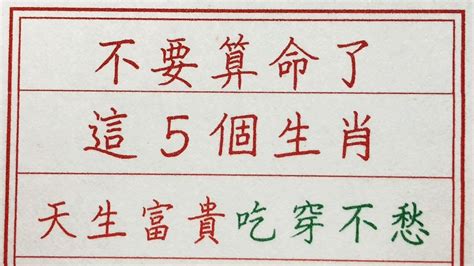 不要算命了
這5個生肖
天生富貴吃穿不愁